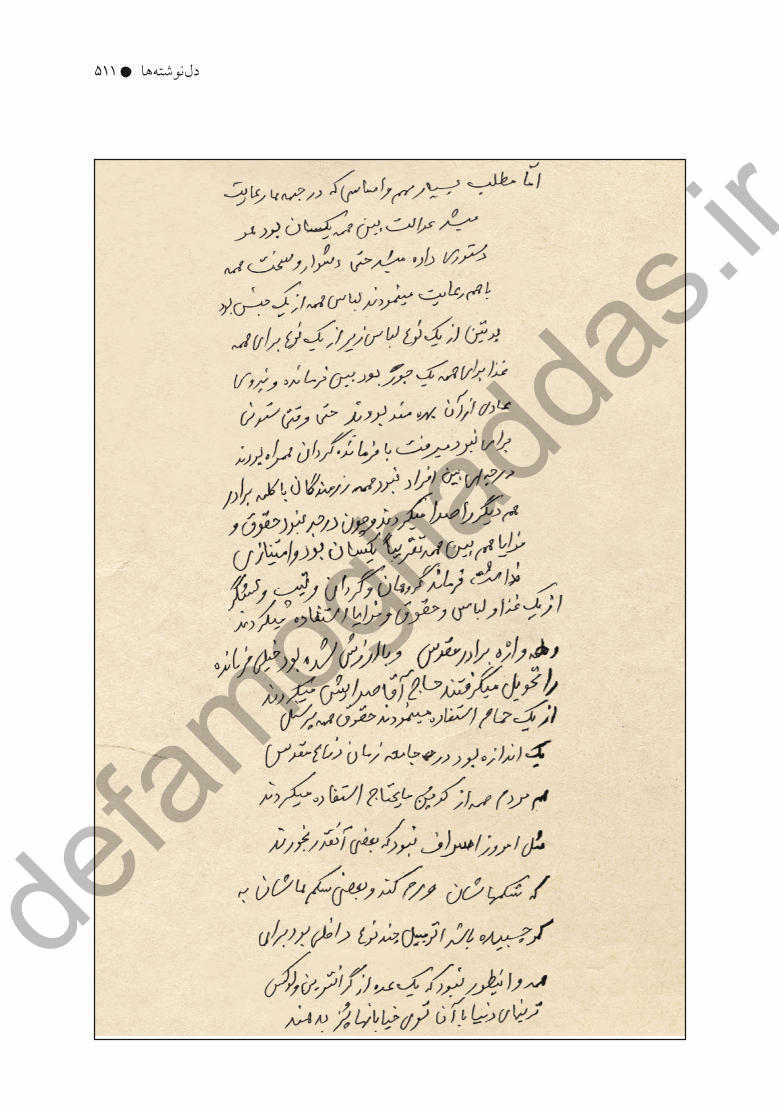 دل‌نوشته‌ها ● ۵۱۱
امّا مطلب بسیار مهم و اساسی که در جبهه ها رعایت
میشد عدالت بین همه یکسان بود هر
دستوری داده میشد حتی دشوار و سخت همه
با هم رعایت مینمودند لباس همه از یک جنس بود
پوتین از یک نوع لباس زیر از یک نوع برای همه
غذا برای همه یک جور بود بین فرمانده و نیروی
عادی از آن بهره مند بودند حتی وقتی ستونی
برای نبود میرفت با فرمانده گردان همراه بودند
درجه ای بین افراد نبود همه رزمندگان با کلمه برادر
هم دیگر را صدا میکردند و چون درجه نبود حقوق و
مزایا هم بین همه تقریباً یکسان بود و امتیازی
نداشت فرمانده گروهان و گردان و تیپ و لشگر
از یک غذا و لباس و حقوق و مزایا استفاده میکردند
واژه برادر مقدس و با ارزش شده بود خیلی فرمانده
را تحویل میگرفتند حاج آقا صدایش میکردند
از یک حمام استفاده مینمودند حقوق همه پرسنل
یک اندازه بود در جامعه زمان دفاع مقدس
هم مردم همه از کوپن مایحتاج استفاده میکردند
مثل امروز اصراف نبود که بعضی آنقدر بخورند
که شکمهاشان ورم کند و بعضی شکم هاشان به
کمر چسبیده باشد اتومبیل چند نوع داخلی بود برای
همه و اینطور نبود که یک عده از گرانترین و لوکس
ترینهای دنیا با آن توی خیابانها پُز بدهند
defamoghaddas.ir